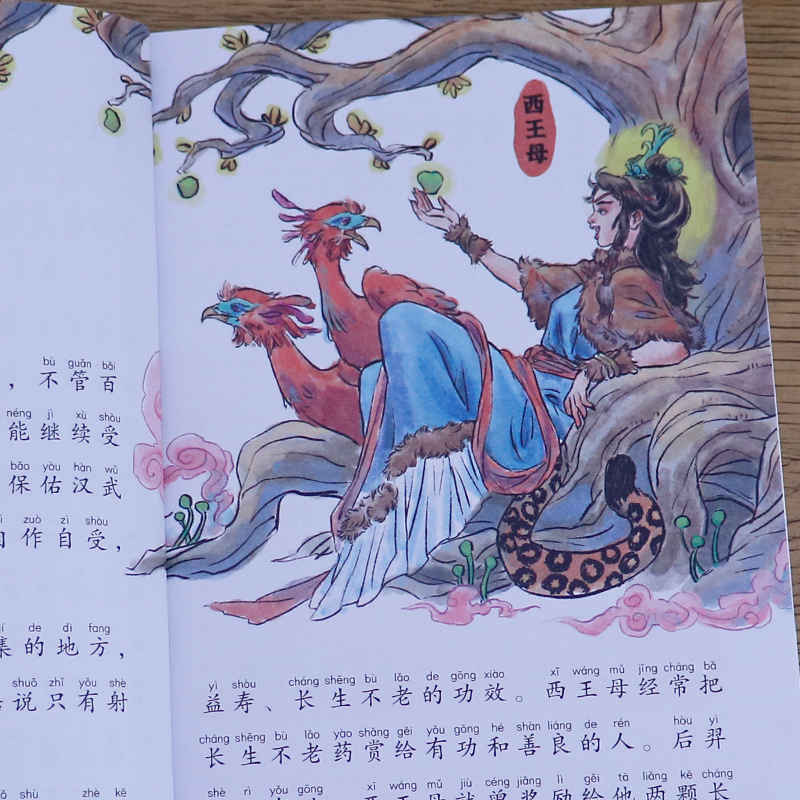 bù guǎn bǎi
，不管百
néng jì xù shòu
能继续受
bǎo yòu hàn wǔ
保佑汉武
zuò zì shòu
作自受，
de dì fang
的地方，
shuō zhǐ yǒu shè
说只有射
shù zhè kē
西王母
yì shòu cháng shēng bù lǎo de gōng xiào xī wáng mǔ jīng cháng bǎ
益寿、长生不老的功效。西王母经常把
cháng shēng bù lǎo yào shǎng gěi yǒu gōng hé shàn liáng de rén hòu yì
长生不老药赏给有功和善良的人。后羿
shè rì yǒu gōng xī wáng mǔ jiù céng jiǎng lì gěi tā liǎng kē cháng
西王母就曾奖励给他两颗长